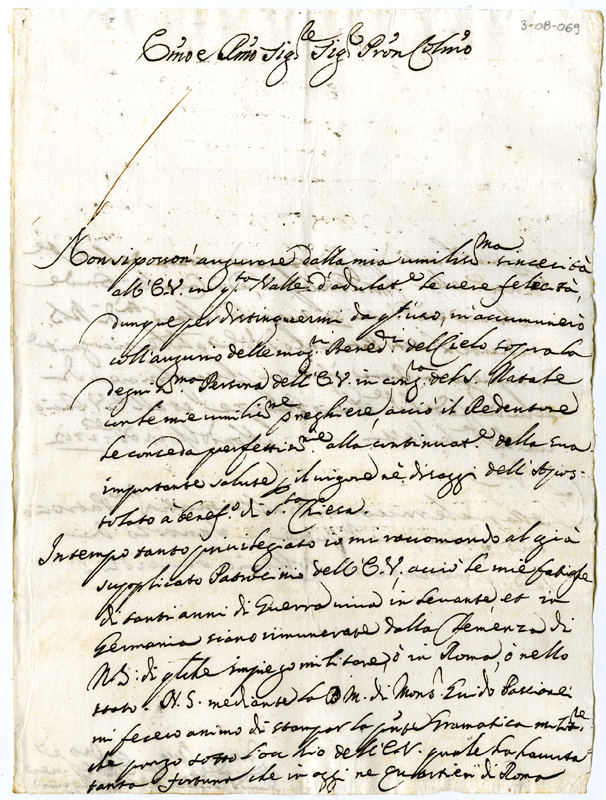 3-08-069
Em̃o e Rm̃o Sig.re Sig.re Pron Colmo
Non si posson' augurare dalla mia umiliss.ma sincerità
all'E.V. in q.sta Valle d'adulat.e le vere felicità,
dunque per distinguermi da gl'uno, m'accumunerò
coll'augurio delle mag.ri Bened.ni del Cielo sopra la
degniss.ma Persona dell'E.V. in cong.ra del S. Natale
con le mie umiliss.me preghiere, acciò il Redentore
le conceda perfettiss.me alla continuat.e della sua
importante salute, il vigore nè disaggi dell'Apos-
tolato à benef.o di S.ta Chiesa.
In tempo tanto privilegiato io mi raccomando al già
supplicato Patrocinio dell'E.V. acciò le mie fatighe
di tanti anni di Guerra viva in Levante, et in
Germania siano rimunerate dalla Clemenza di
N.S. di qlche impiego militare, ò in Roma, ò nello
stato. N.S. mediante la B.M. di Mons.r Guido Passionei
mi fece animo di stampar la pnte Gramatica milit.re
che porgo sotto l'occhio dell'E.V. quale ha havuta
tanta fortuna che in oggi ne Quartieri di Roma